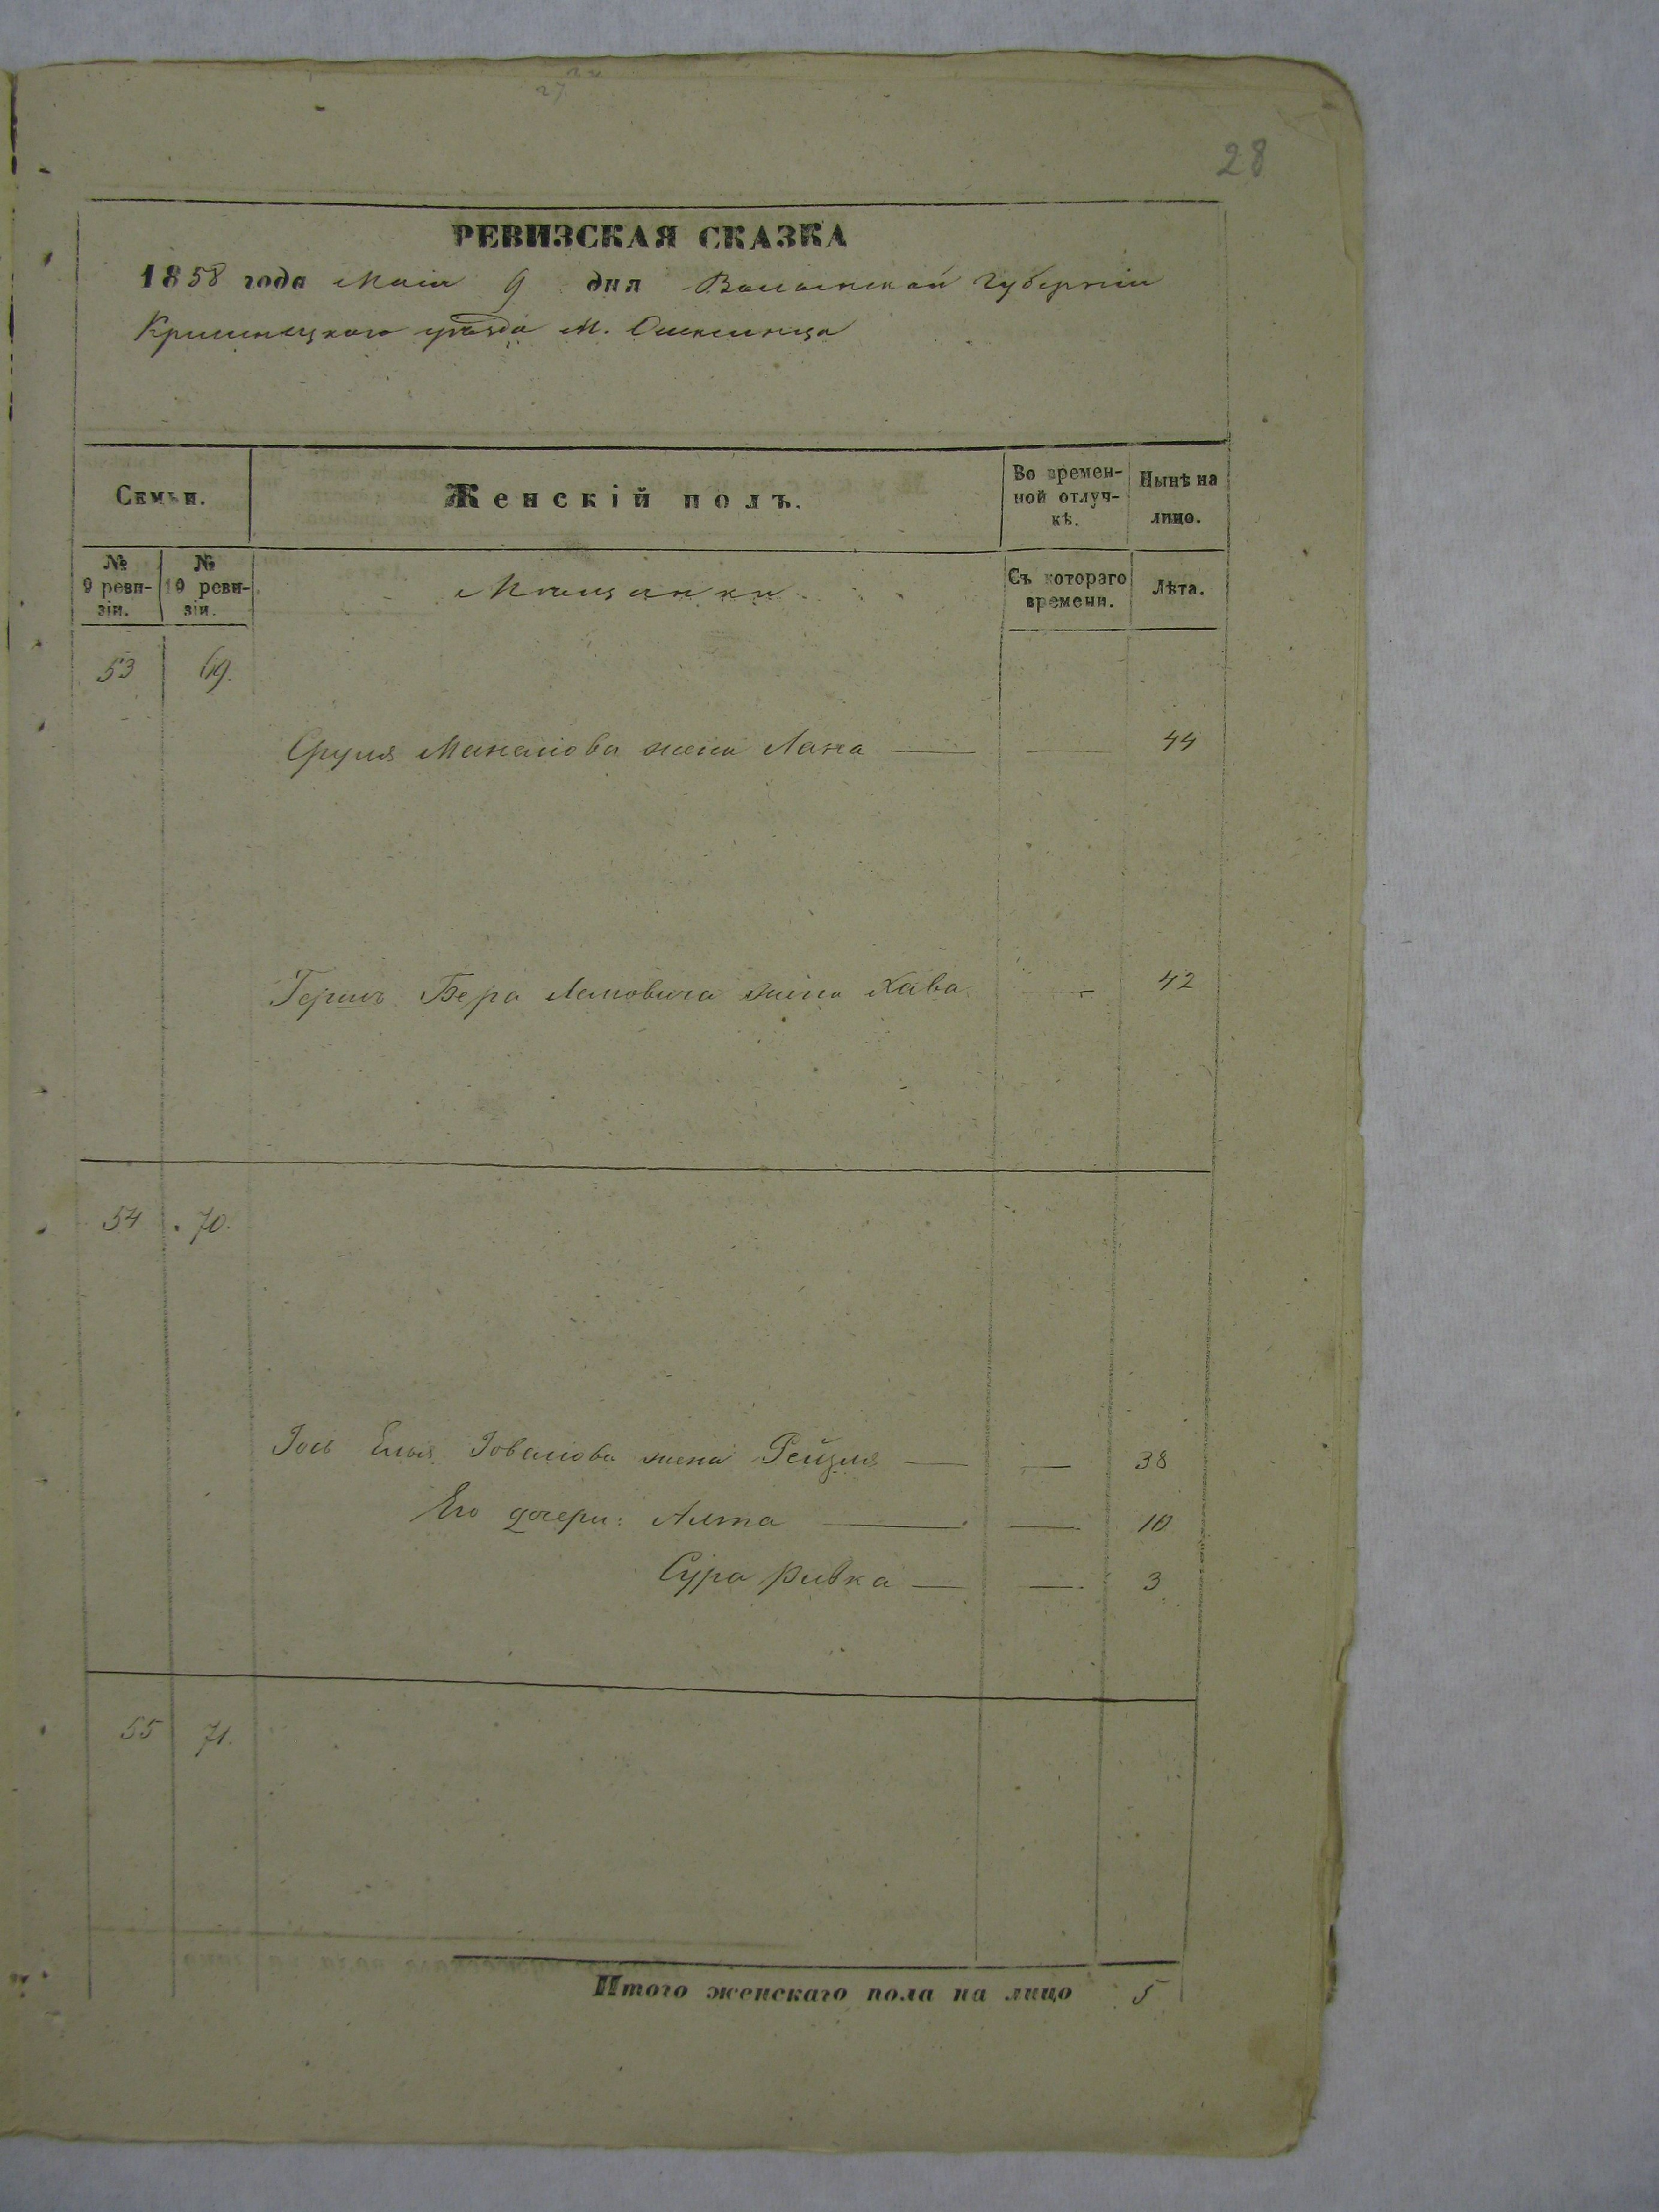 28
РЕВИЗСКАЯ СКАЗКА
1858 года Маія 9 дня Волынской Губерніи
Кременецкаго уѣзда М. Олексинца
Семьи.
Женскій полъ.
Во времен-
ной отлуч-
кѣ.
Нынѣ на
лицо.
№
9 реви-
зіи.
№
10 реви-
зіи.
Мѣщанки
Съ котораго
времени.
Лѣта.
53 69.
Сруля жена 44
Гершъ Бера жена Хава 42
54 70.
Іось Елья жена Рейзля 38
Его дочери: Алта 10
Сура Ривка 3
55 71.
Итого женскаго пола на лицо 5